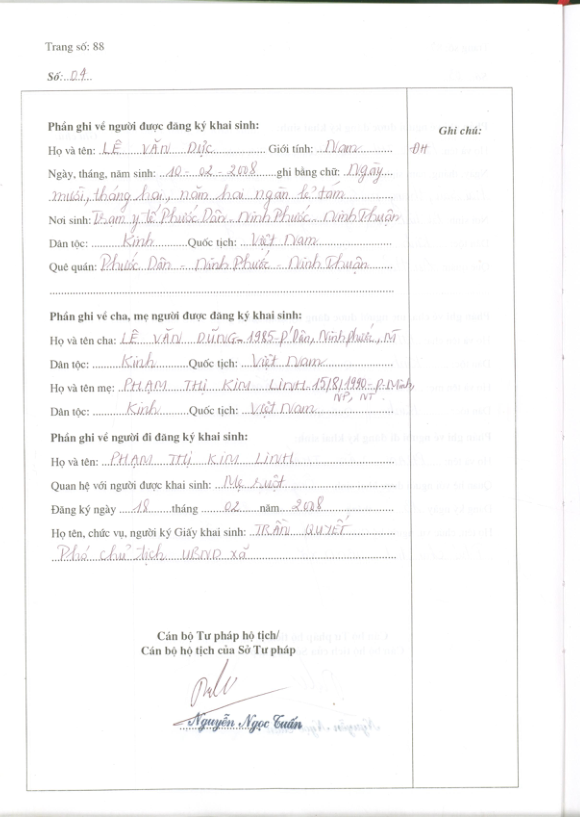 Trang số: 88
Số: 04
Phần ghi về người được đăng ký khai sinh:
Ghi chú:
Họ và tên: LÊ VĂN DỰC Giới tính: Nam
ĐH
Ngày, tháng, năm sinh: 10 - 02 - 2008 ghi bằng chữ: Ngày
mười, tháng hai, năm hai ngàn lẻ tám
Nơi sinh: Trạm y tế Phước Dân - Ninh Phước - Ninh Thuận
Dân tộc: Kinh Quốc tịch: Việt Nam
Quê quán: Phước Dân - Ninh Phước - Ninh Thuận
Phần ghi về cha, mẹ người được đăng ký khai sinh:
Họ và tên cha: LÊ VĂN DŨNG - 1985 - P' Dân, Ninh Phước, NT
Dân tộc: Kinh Quốc tịch: Việt Nam
Họ và tên mẹ: PHẠM THỊ KIM LINH 15/8/1990 - P. Minh,
NP, NT
Dân tộc: Kinh Quốc tịch: Việt Nam
Phần ghi về người đi đăng ký khai sinh:
Họ và tên: PHẠM THỊ KIM LINH
Quan hệ với người được khai sinh: Mẹ ruột
Đăng ký ngày 18 tháng 02 năm 2008
Họ tên, chức vụ, người ký Giấy khai sinh: TRẦN QUYẾT
Phó chủ tịch UBND xã
Cán bộ Tư pháp hộ tịch/
Cán bộ hộ tịch của Sở Tư pháp
Nguyễn Ngọc Tuấn